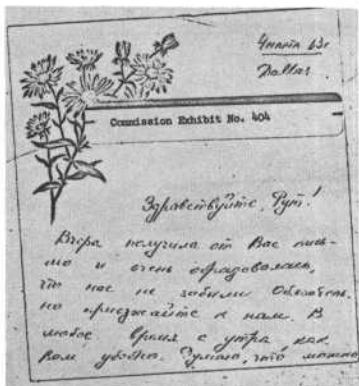 4 марта 63г
Dallas.
Commission Exhibit No. 404
Здравствуйте, Рут!
Вчера получила от Вас пись-
мо и очень обрадовалась,
что нас не забыли Обязатель-
но приезжайте к нам. В
любое время с утра как
Вам удобно. Думаю, что можно